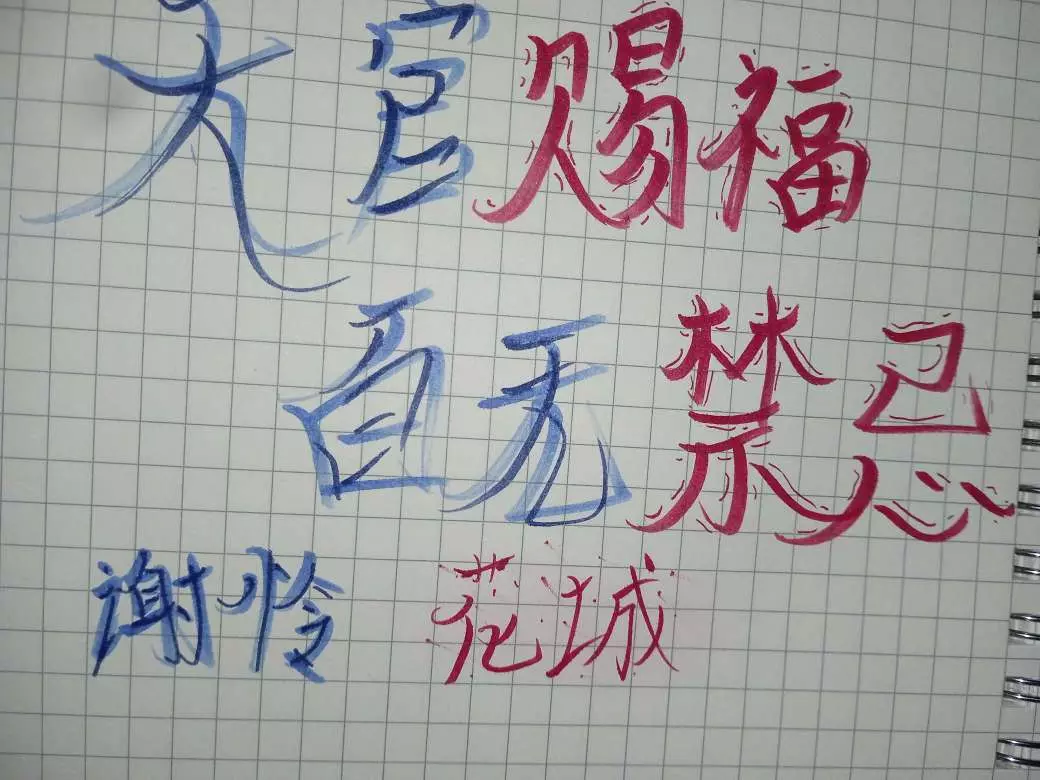 天官赐福
百无禁忌
谢怜 花城